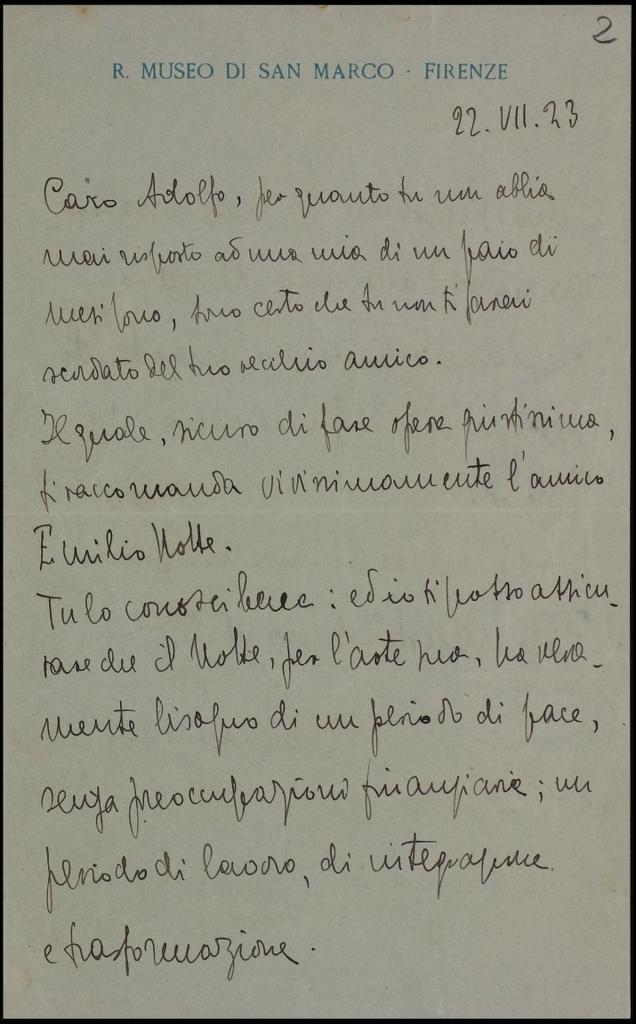 2
R. MUSEO DI SAN MARCO · FIRENZE
22.VII.23
Caro Adolfo, per quanto tu non abbia
mai risposto ad una mia di un paio di
mesi fono, sono certo che tu non ti sarai
scordato del tuo vecchio amico.
Il quale, sicuro di fare opera giustissima,
ti raccomanda vivissimamente l'amico
Emilio Notte.
Tu lo conosci bene: ed io ti posso assicu-
rare che il Notte, per l'arte sua, ha vera-
mente bisogno di un periodo di pace,
senza preoccupazioni finanziarie; un
periodo di lavoro, di integrazione
e trasformazione.